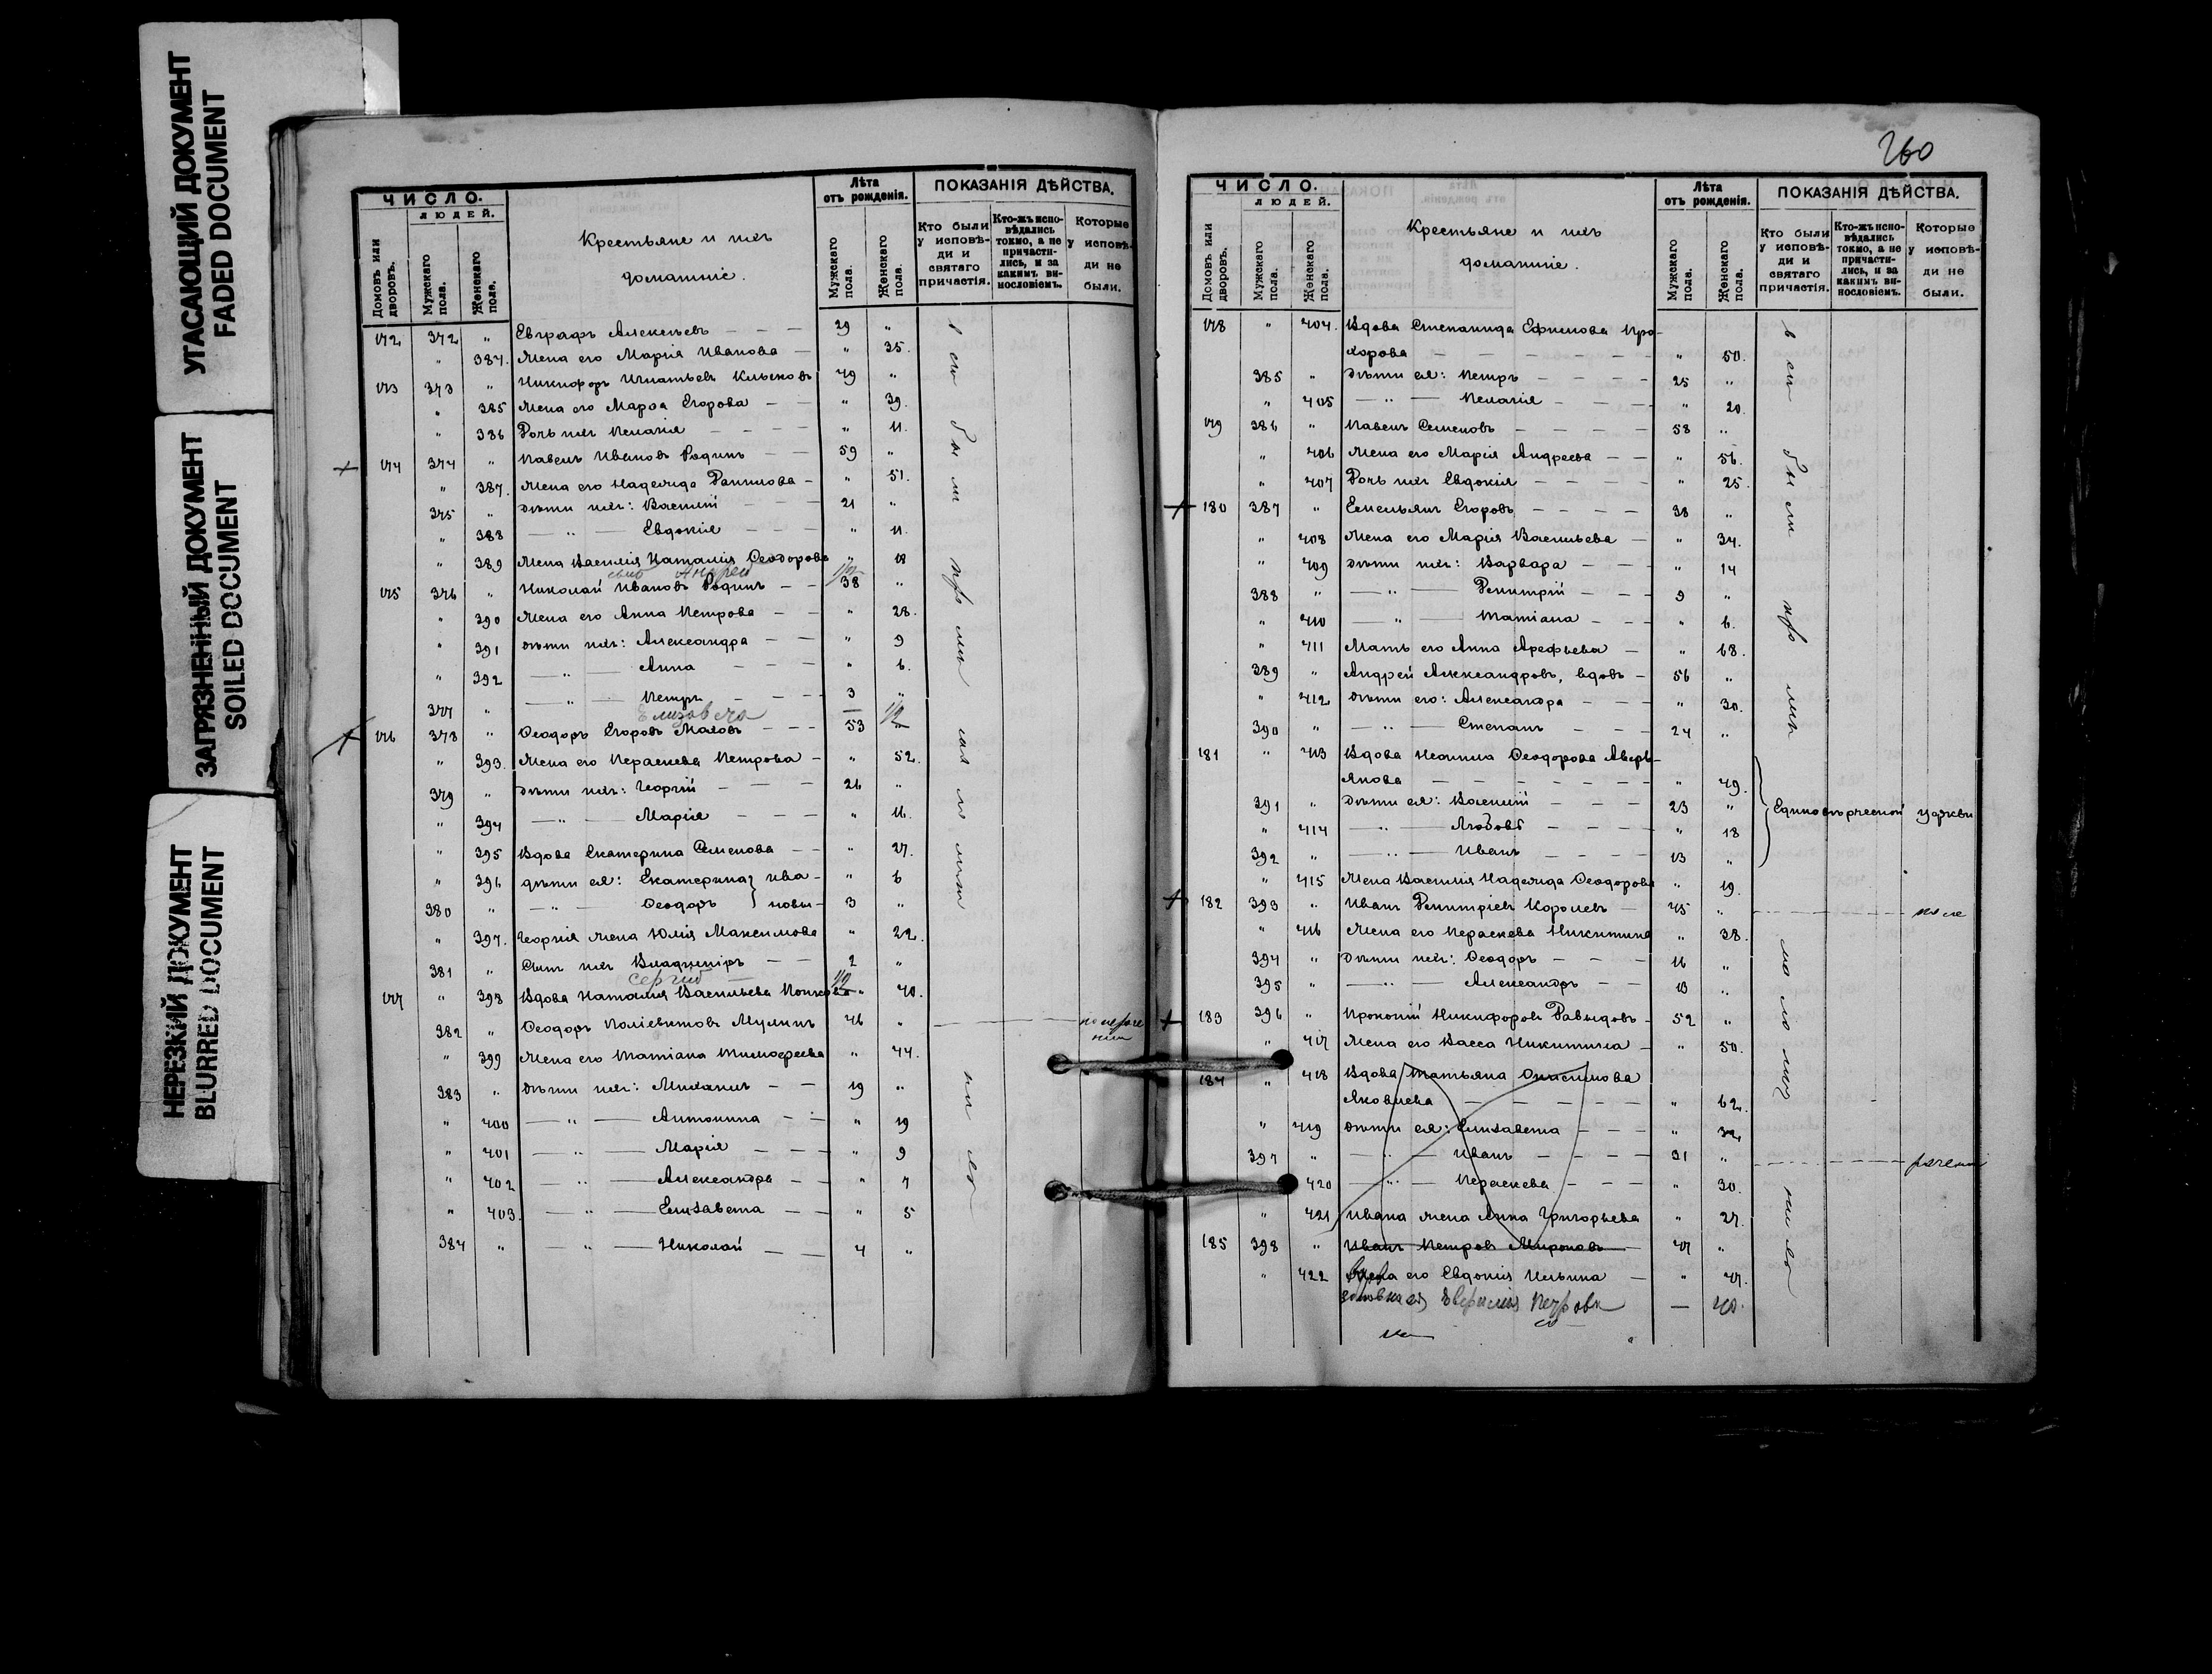 УГАСАЮЩИЙ ДОКУМЕНТ
FADED DOCUMENT
ЗАГРЯЗНЕННЫЙ ДОКУМЕНТ
SOILED DOCUMENT
НЕРЕЗКИЙ ДОКУМЕНТ
BLURRED DOCUMENT
ЧИСЛО.
ЛЮДЕЙ.
Домовъ или дворовъ.
Мужскаго пола.
Женскаго пола.
Крестьяне и ихъ
домашніе.
Лѣта отъ рожденія.
Мужскаго пола.
Женскаго пола.
ПОКАЗАНІЯ ДѢЙСТВА.
Кто были у исповѣди и святаго причастія.
Кто-жъ исповѣдались токмо, а не причастились, и за какимъ винословіемъ.
Которые у исповѣди не были.
172 372 " Евграфъ Алексѣевъ — — — 29 "
" 384. Жена его Марія Иванова — " 35.
173 373 " Никифоръ Игнатьевъ 49 "
" 385 Жена его Марѳа Егорова — — " 39.
" 386 Дочь ихъ Пелагія — — — — " 11.
174 374 " Павелъ Ивановъ Родинъ — — 59 "
" 387. Жена его Надежда Данилова — " 51.
375 " Дѣти ихъ: Василій — — — 21 "
" 388 — " — Евдокія — — — " 11.
" 389 Жена Василія Наталія Ѳеодорова " 18
сынъ Андрей 1/2
175 376 " Николай Ивановъ Родинъ — — 38 "
" 390 Жена его Анна Петрова — — " 28.
" 391 Дѣти ихъ: Александра — — " 9
" 392 — " — Анна — — — " 6.
377 " — " — Петръ — — — 3 "
Елизавета — 1/2
176 378 " Ѳеодоръ Егоровъ Маловъ — — — 53 "
" 393. Жена его Параскева Петрова — " 52.
379 " Дѣти ихъ: Георгій — — — 26 "
" 394 — " — Марія — — — " 16.
" 395 Вдова Екатерина Семенова — — " 27.
" 396 Дѣти ея: Екатерина } Ива- " 6
380 " — " — Ѳеодоръ } новы — 3 "
" 397. Георгія жена Юлія Максимова " 22.
381 " Сынъ ихъ Владиміръ — — 2 "
Сергій 1/2
177 " 398 Вдова Наталія Васильева " 40.
382 " Ѳеодоръ Поліевктовъ Мулинъ 46 "
" 399 Жена его Татіана Тимоѳеева " 44.
383 " Дѣти ихъ: Михаилъ — — 19 "
" 400 — " — Антонина — — " 19
" 401 — " — Марія — — — " 9
" 402 — " — Александра — — " 7
" 403. — " — Елизавета — — " 5
384 " — " — Николай — — 4 "
260
ЧИСЛО.
ЛЮДЕЙ.
Домовъ или дворовъ.
Мужскаго пола.
Женскаго пола.
Крестьяне и ихъ
домашніе.
Лѣта отъ рожденія.
Мужскаго пола.
Женскаго пола.
ПОКАЗАНІЯ ДѢЙСТВА.
Кто были у исповѣди и святаго причастія.
Кто-жъ исповѣдались токмо, а не причастились, и за какимъ винословіемъ.
Которые у исповѣди не были.
178 " 404. Вдова Степанида Ефимова Про-
хорова — — — — — — " 50.
385 " Дѣти ея: Петръ — — — — 25 "
" 405 — " — Пелагія — — — " 20.
179 386 " Павелъ Семеновъ — — — — 58 "
" 406 Жена его Марія Андреева — — " 56.
" 407 Дочь ихъ Евдокія — — — — " 25.
180 387 " Емельянъ Егоровъ — — — — 38 "
" 408 Жена его Марія Васильева — " 34.
" 409 Дѣти ихъ: Варвара — — — " 14
388 " — " — Димитрій — — — 9 "
" 410 — " — Татіана — — — " 6.
" 411 Мать его Анна Арефьева — " 68.
389 " Андрей Александровъ, вдовъ — 56 "
" 412 Дѣти его: Александра — — — " 30.
390 " — " — Степанъ — — — 24 "
181 " 413 Вдова Неонила Ѳеодорова Аверь-
янова — — — — — — " 49.
391 " Дѣти ея: Василій — — — 23 "
Единовѣрческой церкви
" 414 — " — Любовь — — — " 18
392 " — " — Иванъ — — — — 13 "
" 415 Жена Василія Надежда Ѳеодорова " 19.
182 393 " Иванъ Димитріевъ Королевъ — 45 "
" 416 Жена его Параскева Никитина " 38.
394 " Дѣти ихъ: Ѳеодоръ — — — 16 "
395 " — " — Александръ — — 13 "
183 396 " Прокопій Никифоровъ Давыдовъ — 52 "
" 417 Жена его Васса Никитина — " 50.
184 " 418 Вдова Татьяна Онисимова
Яковлева — — — — — " 62.
" 419 Дѣти ея: Елизавета — — — " 32.
397 " — " — Иванъ — — — — 31 "
" 420 — " — Параскева — — — " 30.
" 421 Ивана жена Анна Григорьева " 27.
185 398 " Иванъ Петровъ Мироновъ — 47 "
" 422 его Евдокія Ильина — " 47.
Петрова — 40.